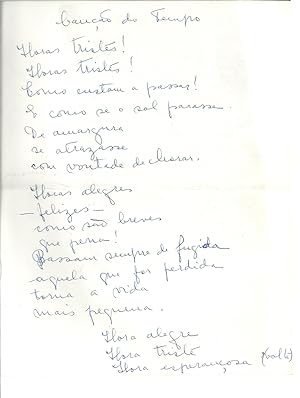 Canção do Tempo
Horas tristes!
Horas tristes!
Como custam a passar!
É como se o sol parasse.
De amargura
se atrazasse
com vontade de chorar.
Horas alegres
— felizes —
como são breves
que pena!
Passam sempre de fugida
aquela que for perdida
torna a vida
mais pequena.
Hora alegre
Hora triste
Hora esperançosa